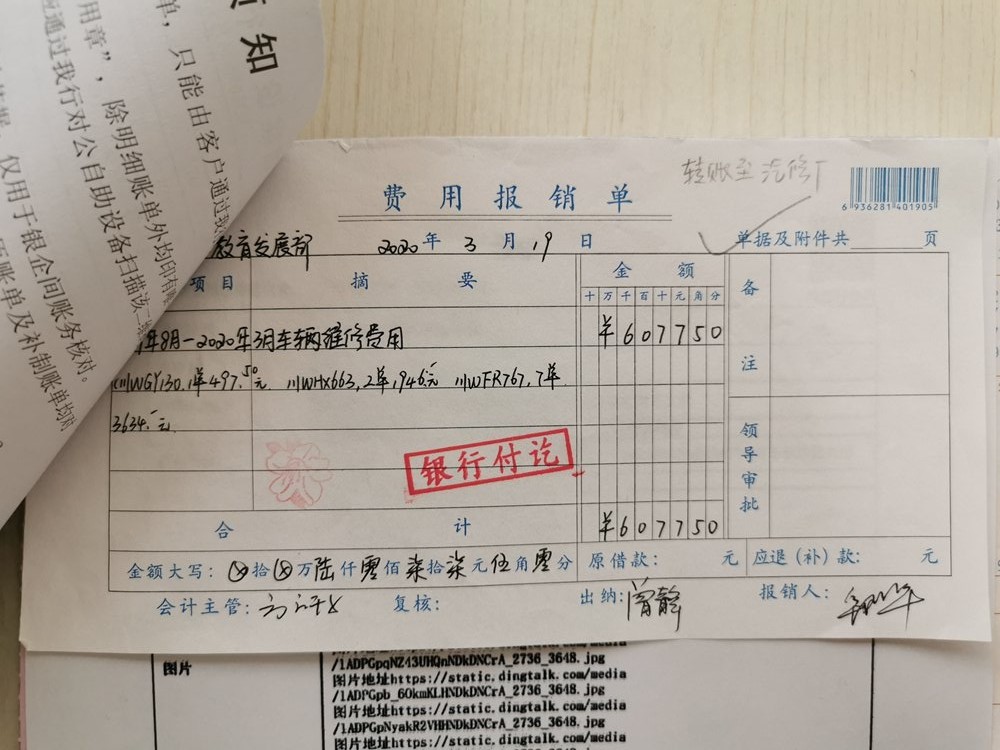 知
单，只能由客户通过我
用章”，除明细账单外均印有
通过我行对公自助设备扫描该二
仅用于银企间账务核对。
账单及补制账单均
转账至汽修厂
费用报销单
6 936281 401905
教育发展部 2020年 3月 19日 单据及附件共 页
项目 摘要 金额 备注
十万千百十元角分
年8月-2020年3月车辆维修费用 ¥607750
川WGY130,1单497.50元 川WHX663,2单,1946元 川WFR767,7单
3634.元
领导审批
银行付讫
合计 ¥607750
金额大写: ⊗拾⊗万陆仟零佰柒拾柒元伍角零分 原借款: 元 应退(补)款: 元
会计主管: 复核: 出纳:曾静 报销人:
图片
/lADPGpqNZ43UHQnNDkDNCrA_2736_3648.jpg
图片地址https://static.dingtalk.com/media
/lADPGpb_60kmKLHNDkDNCrA_2736_3648.jpg
图片地址https://static.dingtalk.com/media
/lADPGpNyakR2VHHNDkDNCrA_2736_3648.jpg
图片地址https://static.dingtalk.com/media